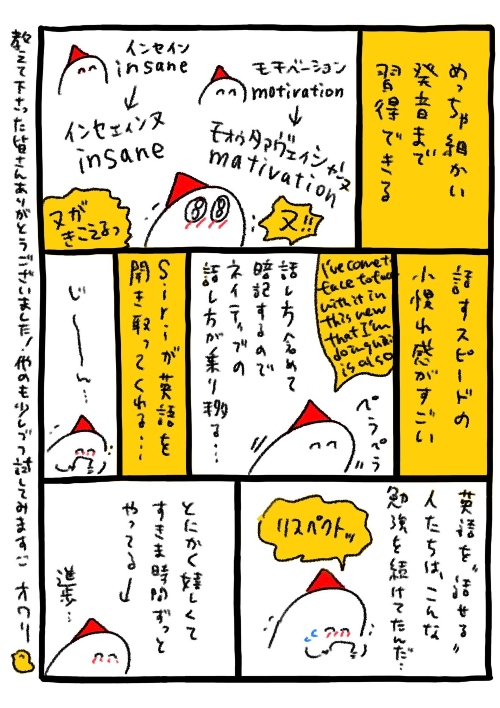 めっちゃ細かい
発音まで
習得できる
モチベーション
motivation
モオゥタァヴェイシャンヌ
motivation
インセイン
insane
インセェィンヌ
insane
ヌ!!
ヌが
きこえるっ
話すスピードの
小慣れ感がすごい
I've come t
face to fac
with it in
this new
that I'm
doing whi
is also
ペラペラ
話し方含めて
暗記するので
ネイティブの
話し方が乗り移る…
Siriが英語を
聞き取ってくれる…
じ〜〜ん…
英語を〝話せる〟
人たちは、こんな
勉強を続けてたんだ…
リスペクトッ
とにかく嬉しくて
すきま時間ずっと
やってる↓
進歩…
教えて下さった皆さんありがとうございました!他のも少しづつ試してみますっ オワリ